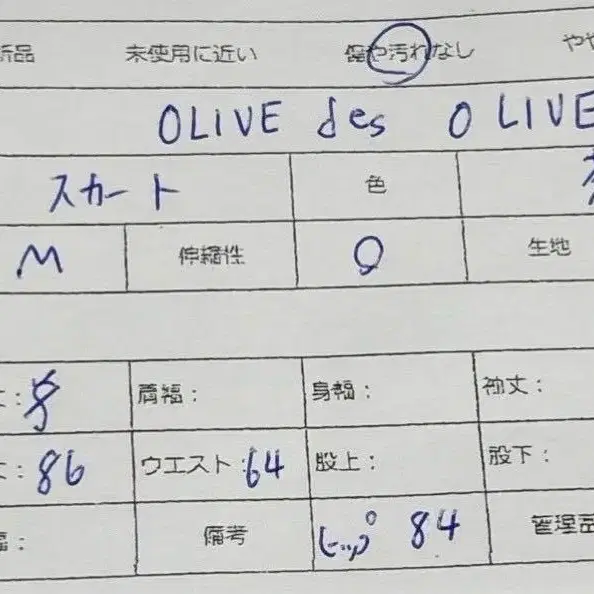 新品 未使用に近い 傷や汚れなし やや
OLIVE des OLIVE
スカート 色
M 伸縮性 O 生地
丈: 肩幅: 身幅: 袖丈:
丈:86 ウエスト:64 股上: 股下:
幅: 備考 ヒップ 84 管理